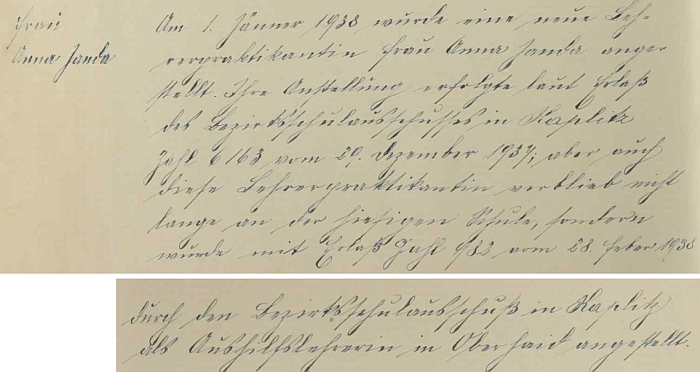 Frau
Anna Janda
Am 1. Jänner 1938 wurde eine neue Leh-
rerpraktikantin Frau Anna Janda ange-
stellt. Ihre Anstellung erfolgte laut Erlaß
des Bezirksschulausschusses in Kaplitz
Zahl 6163 vom 29. Dezember 1937; aber auch
diese Lehrerpraktikantin verblieb nicht
lange an der hiesigen Schule, sondern
wurde mit Erlaß Zahl 982 vom 28. Feber 1938
durch den Bezirksschulausschuß in Kaplitz
als Aushilfslehrerin in Oberhaid angestellt.